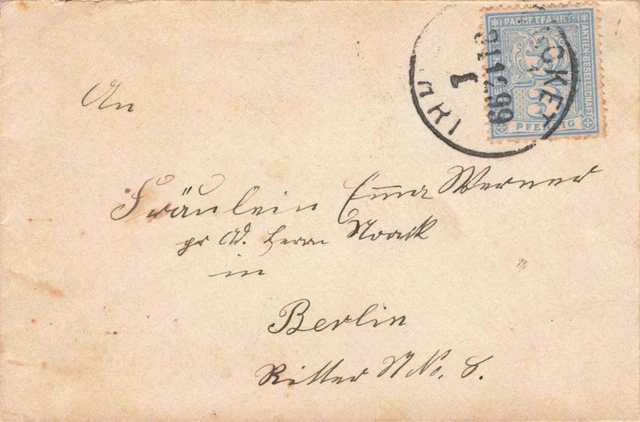 PACKETFAHRT
AKTIENGESELLSCHAFT
PFENNIG
PACKET
31 12 99
1
An
Fräulein Emma Werner
pr Ad. Herrn Noack
in
Berlin
Ritter St No. 8.